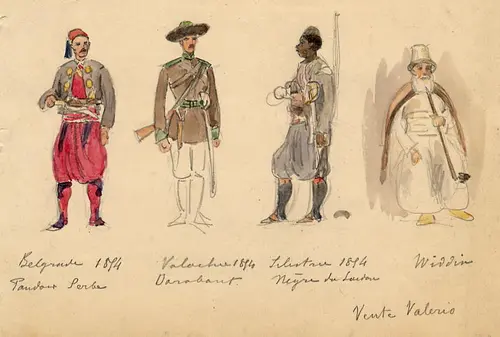 Belgrade 1854
Pandour Serbe
Valachie 1854
Dorobant
Silistrie 1854
Nègre du Soudan
Widdin
Vente Valerio